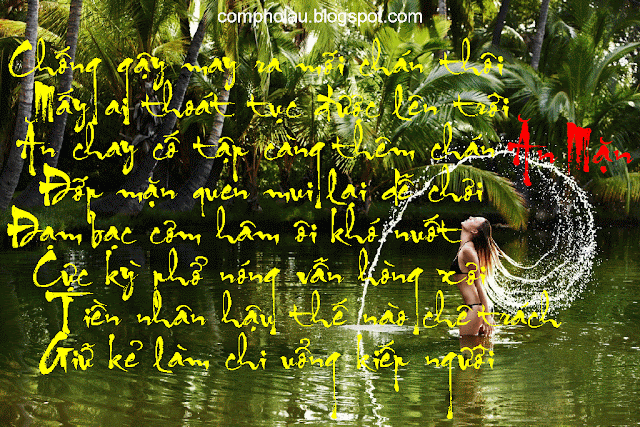 compholau.blogspot.com
Chống gậy may ra mỗi chán thôi
Mấy ai thoát tục được lên trời
Ăn chay cố tập càng thêm chán Ăn Mặn
Đớp mặn quen mui lại dễ chơi
Đạm bạc cơm hâm ôi khó nuốt
Cực kỳ phở nóng vẫn hòng xơi
Tiền nhân hậu thế nào chê trách
Giữ kẻ làm chi uổng kiếp người